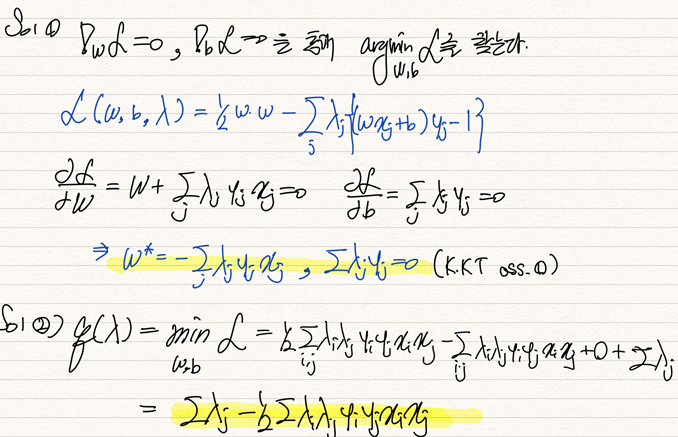 Sol ①) ∇_w ℒ=0, ∇_b ℒ=0을 통해 argmin_{w,b} ℒ을 찾는다.
ℒ(w, b, λ) = ½ w·w − Σ_j λ_j{(wx_j+b)y_j−1}
∂ℒ/∂w = w + Σ_j λ_j y_j x_j = 0   ∂ℒ/∂b = Σ_j λ_j y_j = 0
⇒ w* = −Σ_j λ_j y_j x_j , Σλ_j y_j = 0 (K.KT ass.①)
Sol ②) q(λ) = min_{w,b} ℒ = ½ Σ_{i,j} λ_i λ_j y_i y_j x_i x_j − Σ_{i,j} λ_i λ_j y_i y_j x_i x_j + 0 + Σ λ_j
= Σλ_j − ½ Σ λ_i λ_j y_i y_j x_i x_j